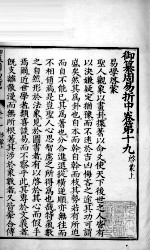 御纂周易折中卷第十九 啟蒙上
易學啟蒙
聖人觀象以畫卦揲蓍以命爻使天下後世之人皆有
以決嫌疑定猶豫而不迷於吉凶悔吝之途其功可謂
盛矣然其為卦也自本而幹自幹而枝其勢若有所迫
而自不能已其為蓍也分合進退縱橫逆順亦無往而
不相值焉是豈聖人心思智慮之所得為也哉特氣數
之自然形於法象見於圖書者有以啟於其心而假手
焉爾近世學者類喜談易而不察乎此其專於文義者
既支離散漫而無所根著其涉於象數者又皆牽合傅